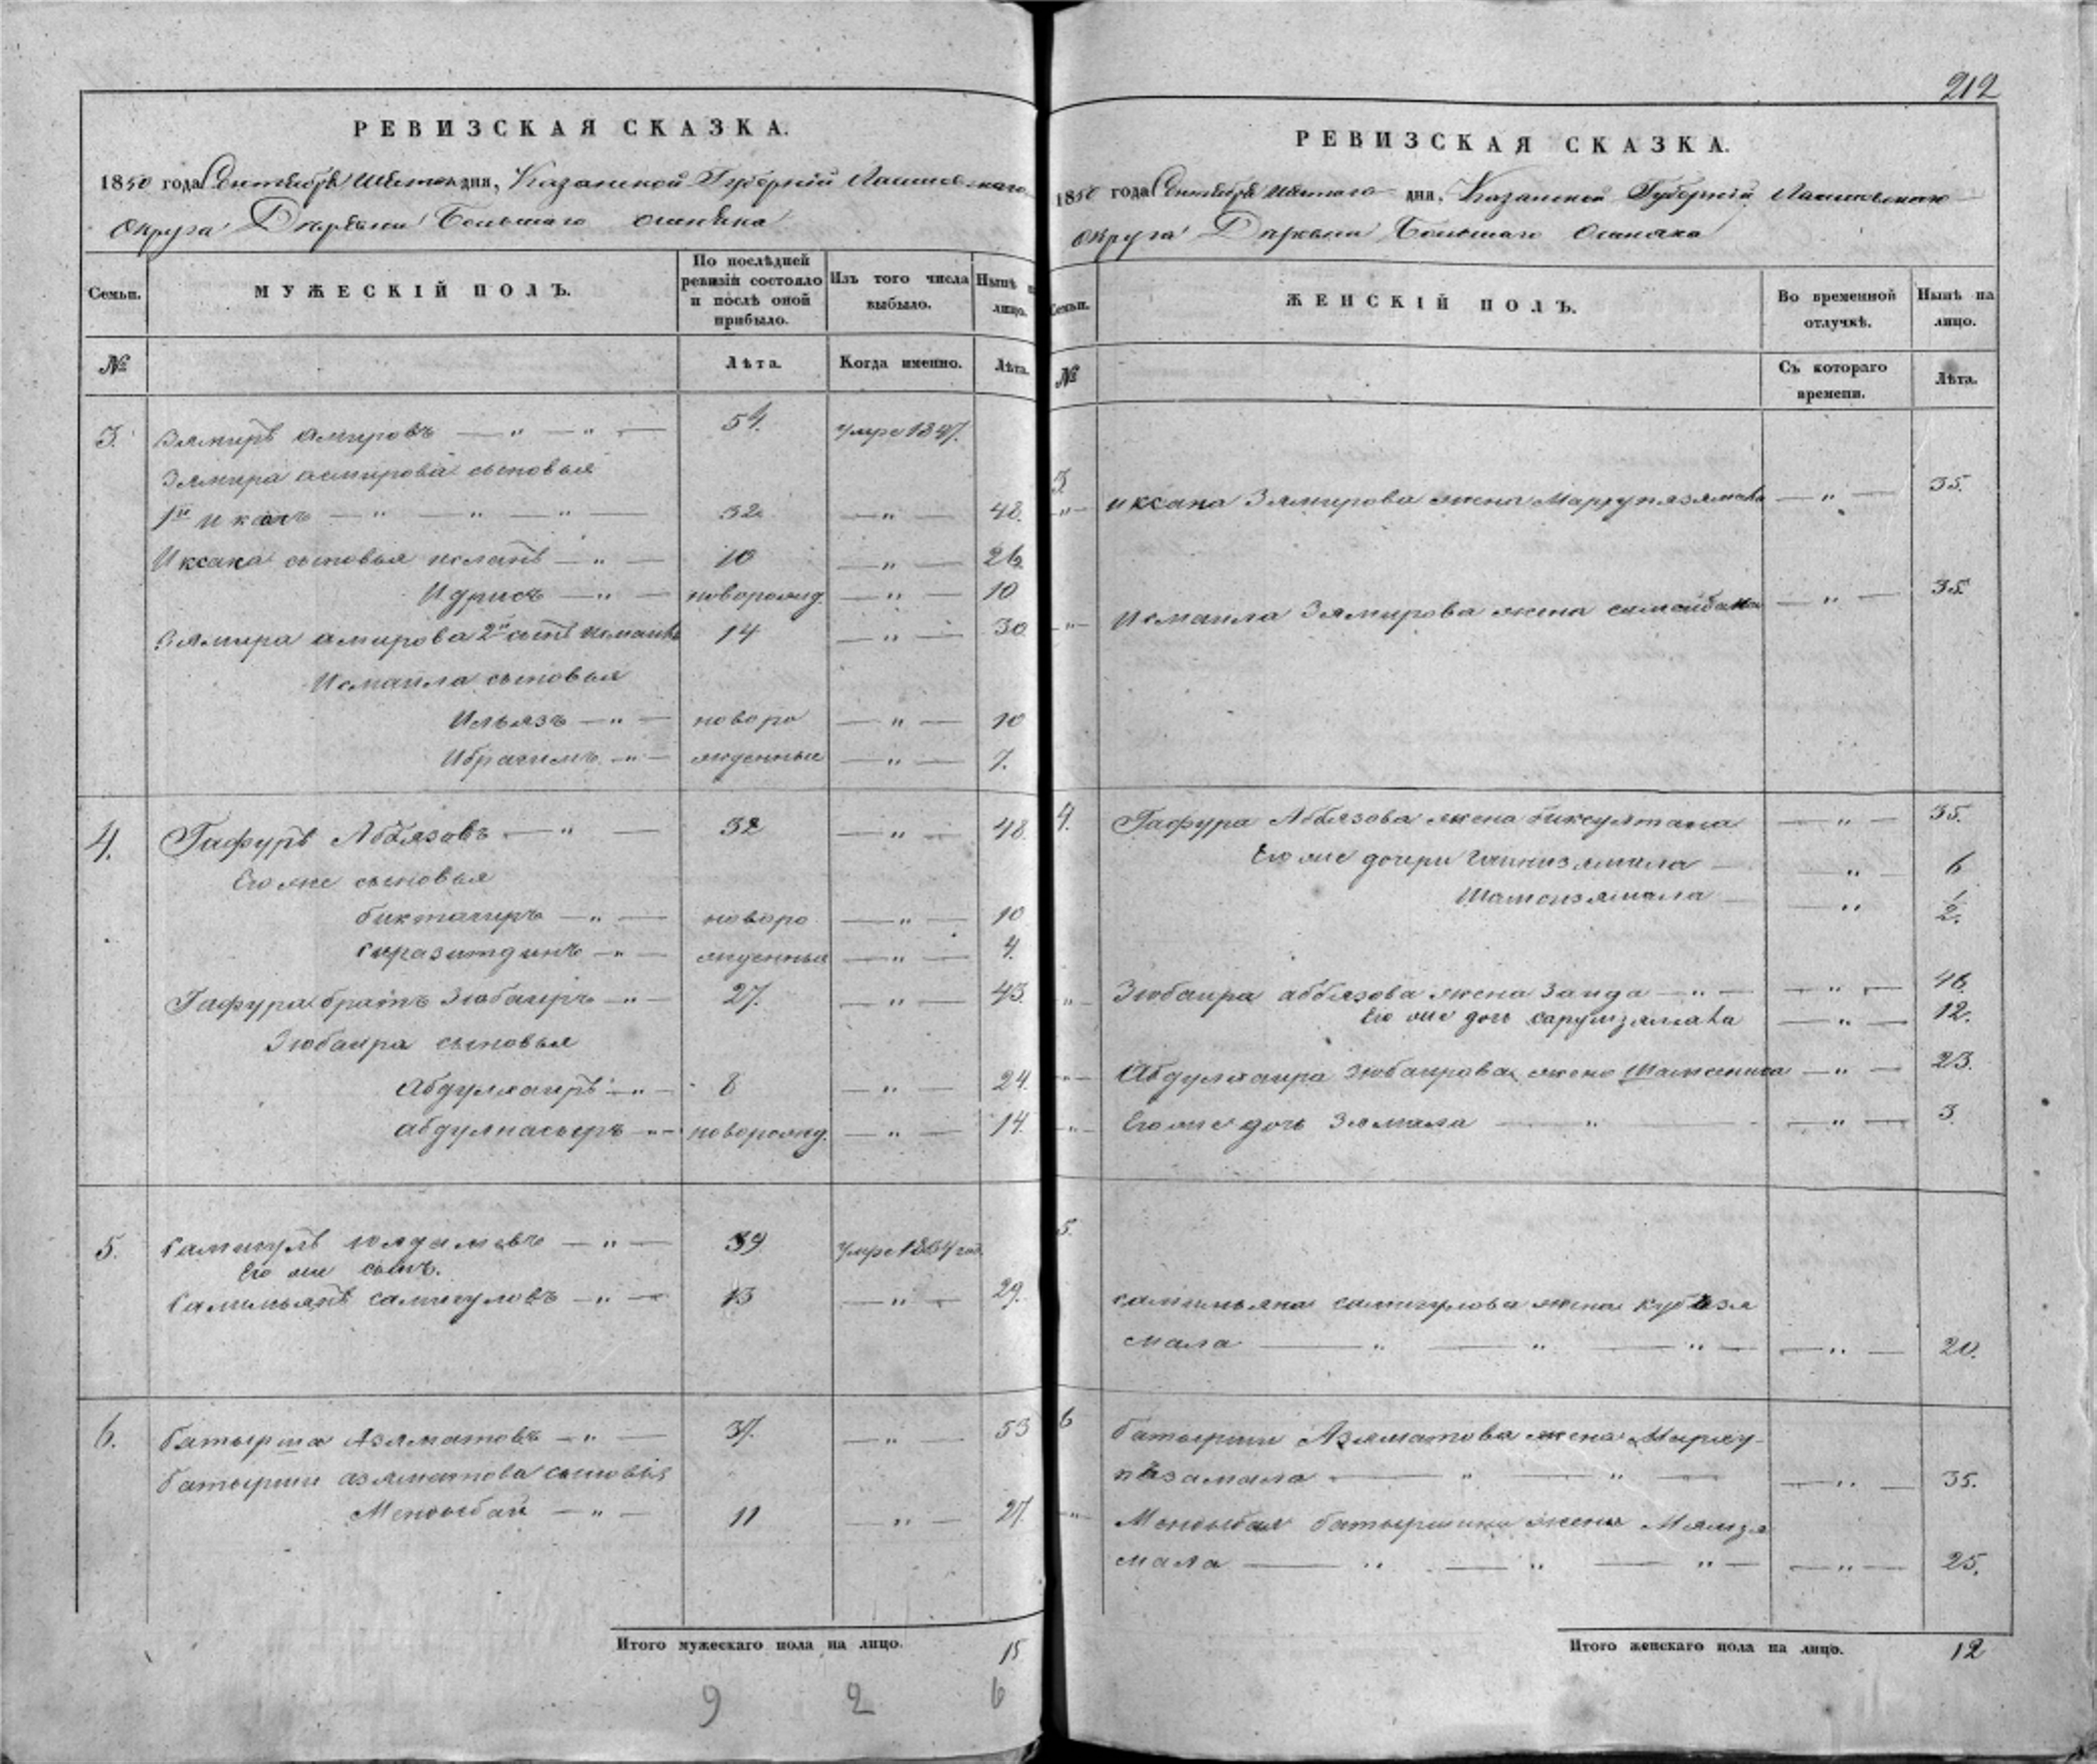 РЕВИЗСКАЯ СКАЗКА.
1850 года Сентября Шестого дня, Казанской Губернiи Лаишевскаго
округа Деревни Большаго Ошняка
Семьи. МУЖЕСКIЙ ПОЛЪ. По послѣдней ревизiи состояло и послѣ оной прибыло. Изъ того числа выбыло. Нынѣ на лицо.
№ Лѣта. Когда именно. Лѣта.
3. Зямиръ Амировъ — " — " — 54. умре 1847.
Зямира Амирова сыновья
1й Иксакъ — " — " — " — 32 — " — 48.
Иксака сыновья — " — 10 — " — 26
Идрисъ — " — новорожд. — " — 10
Зямира Амирова 2й сынъ Исмаилъ 14 — " — 30
Исмаила сыновья
Ильязъ — " — новоро — " — 10
Ибрагимъ — " — жденные — " — 7.
4. Гафуръ Аббязовъ — " — 32 — " — 48.
Его же сыновья
Биктагиръ — " — новоро — " — 10
Сиразитдинъ — " — жденныя — " — 4.
Гафура братъ Зюбаиръ — " — 27. — " — 43.
Зюбаира сыновья
Абдулхаиръ — " — 8 — " — 24.
Абдулнасыръ — " — новорожд. — " — 14.
5. Самигулъ — " — 39 умре 1834 год.
Его же сынъ.
Салимьянъ Самигуловъ — " — 13 — " — 29.
6. Батырша Азяматовъ — " — 37. — " — 53
Батырши Азяматова сыновья
Мендыбай — " — 11 — " — 27.
Итого мужескаго пола на лицо. 15
9 2 6
212
РЕВИЗСКАЯ СКАЗКА.
1850 года Сентября Шестаго дня, Казанской Губернiи Лаишевскаго
округа Деревни Большаго Ошняка
Семьи. ЖЕНСКIЙ ПОЛЪ. Во временной отлучкѣ. Нынѣ на лицо.
№ Съ котораго времени. Лѣта.
3
" Иксака Зямирова жена — " — 35.
" Исмаила Зямирова жена — " — 35
4. Гафура Аббязова жена Биксултана — " — 35.
Его же дочери — " — 6
Шамсизямала — " 1/2.
" Зюбаира Аббязова жена Заида — " — — " — 48.
Его же дочь — " — 12.
" Абдулхаира Зюбаирова жена — " — 23.
" Его же дочь Зямала — " — — " — 3.
5.
Салимьяна Самигулова жена Кубязя
мала — " — " — " — — " — 20.
6 Батырши Азяматова жена Мярху-
пязамала — " — " — — " — 35.
" Мендыбая Батыршина жена Мямзя
мала — " — " — " — — " — 25.
Итого женскаго пола на лицо. 12